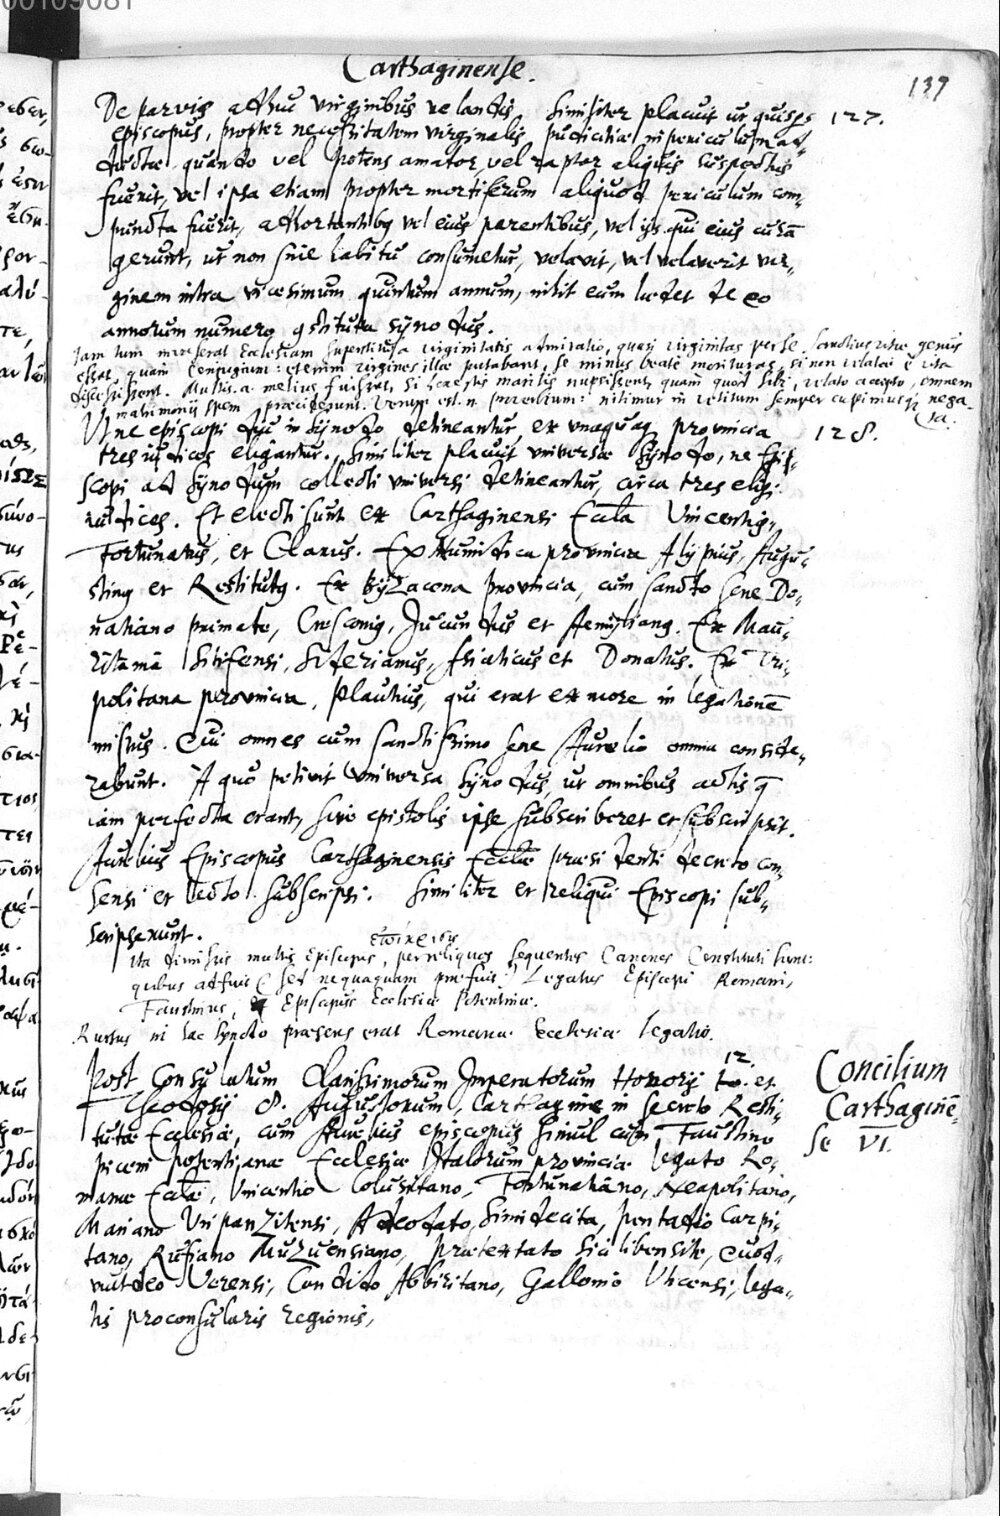 00109081
Carthaginense.
137
De parvis adhuc virginibus velandis, Similiter placuit ut quisqs 127.
episcopus, propter necessitatem virginalis pudicitiæ in periculum ad-
ductæ quando vel potens amator, vel raptor aliquis suspectus
fuerit, vel ipsa etiam propter mortiferum aliquod periculum com-
puncta fuerit, adhortantibq vel eius parentibus, vel ijs qui eius curā
gerunt, ut non sine habitu consumetur, velavit, vel velaverit vir-
ginem intra vicesimum quintum annum, nihil eum lædet de eo
annorum numero qstituta synodus.
Jam tum invaserat Ecclesiam superstitiosa virginitatis admiratio, quasi virginitas per se sanctius vitæ genus
esset, quam conjugium: etenim virgines illæ putabant, se minus beate morituras, si non velatæ è vita
discessissent. Multis a. melius fuisset, si scelestis maritis nupsissent, quam quod sibi, velato accepto, omnem
matrimonij spem præciderunt. Verum est n. proverbium: nitimur in vetitum semper cupimusq nega-
ta.
Ut ne episcopi diu in synodo detineantur ex unaquaq provincia 128.
tres iudices eligantur. Similiter placuit universæ Synodo, ne Epi-
scopi ad synodum collecti universi detineantur, circa tres eligi
iudices. Et electi sunt ex Carthaginensi Eccla Vincentiq,
Fortunatus, et Clarus. Ex Numidica provincia Alypius, Augu-
stinq et Restitutq. Ex Byzacena provincia, cum sancto sene Do-
natiano primate, Cresconiq, Jucundus et Aemilianq. Ex Mau-
ritania Sitifensi, Severianus, Asiaticus et Donatus. Ex Tri-
politana provincia, Plautius, qui erat ex more in legationē
missus. Qui omnes cum sanctissimo sene Aurelio omnia conside-
rabunt. A quo petivit universa synodus, ut omnibus actis q̄
iam perfecta erant, sive epistolis ipse subscriberet et subscripsit.
Aurelius Episcopus Carthaginensis Ecclæ præsidenti decreto con-
sensi et lecto subscripsi. Similiter et reliqui Episcopi sub-
scripserunt.
Ita dimissis multis Episcopis, per reliquos sequentes Canones Constituti sunt:
quibus adfuit (sed nequaquam præfuit) Legatus Episcopi Romani,
Faustinus, Episcopus Ecclesiæ Potentinæ.
Rursus in hac synodo præsens erat Romanæ Ecclesiæ legatio.
Post Consulatum Clarissimorum Imperatorum Honorij 12. et
Theodosij 8. Augustorum, Carthagine in secreto Resti-
tutæ Ecclesiæ, cum Aurelius episcopus simul cum Faustino
Piceni Potentianæ Ecclesiæ Italorum provinciæ legato Ro-
manæ Ecclæ, Vincentio Colusitano, Fortunatiano, Neapolitano,
Mariano Uripanzitensi, Adeodato, Simidecita, Pentadio Carpi-
tano, Rufiano Muzuensiano, Prætextato Sicilibensite, Quod-
vultdeo Verensi, Candido Abbiritano, Gallonio Uticensi, lega-
tis proconsularis regionis,
Concilium
Carthaginē-
se VI.